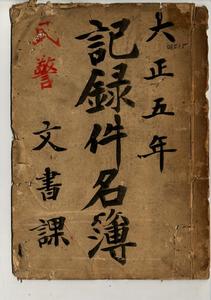 大正五年
記録件名簿
文書課